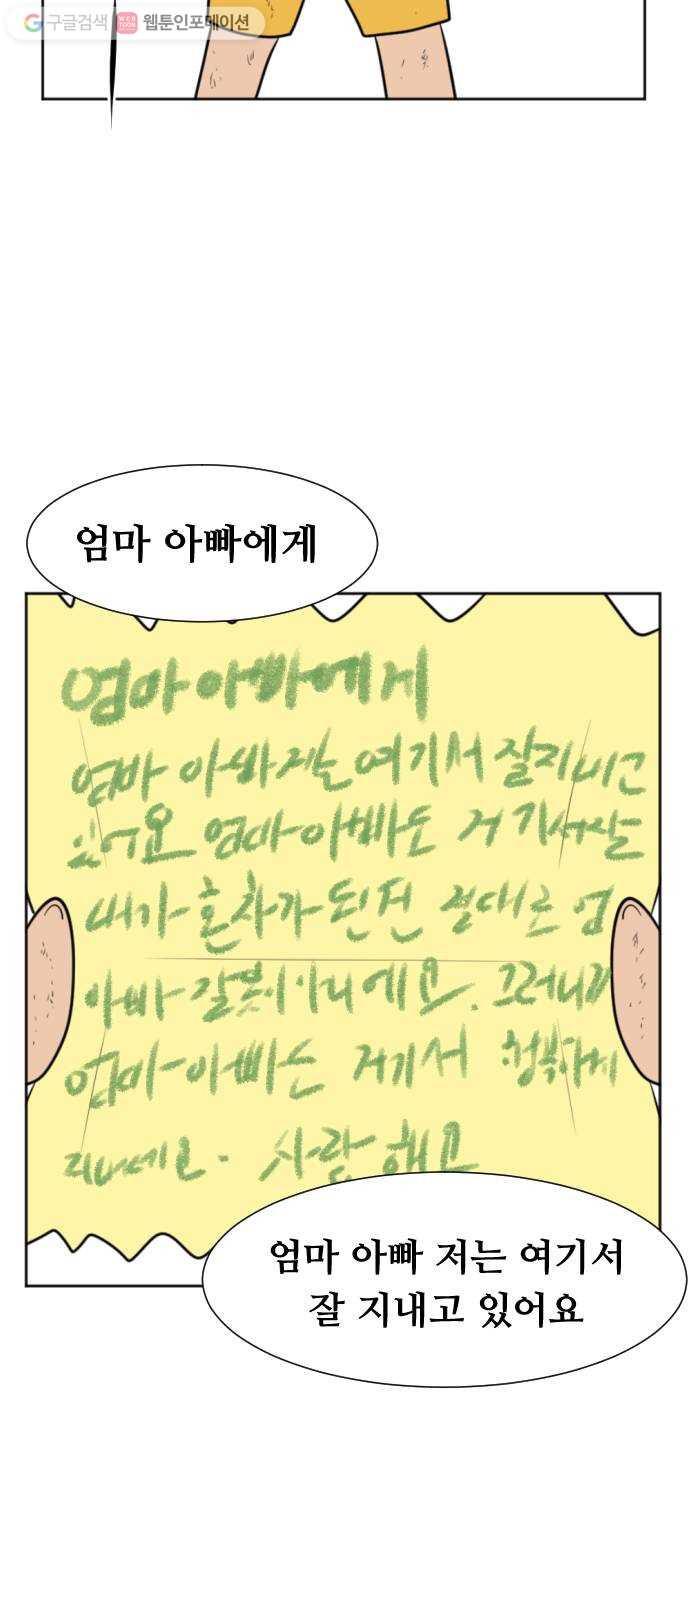 구글검색 웹툰인포메이션
엄마 아빠에게
엄마아빠에게
엄마 아빠 저는 여기서 잘지내고
있어요 엄마아빠도 거기서 잘
내가 혼자가 된건 절대로 엄
아빠 잘못이아니에요. 그러니까
엄마아빠는 거기서 행복하게
지내세요. 사랑해요
엄마 아빠 저는 여기서
잘 지내고 있어요